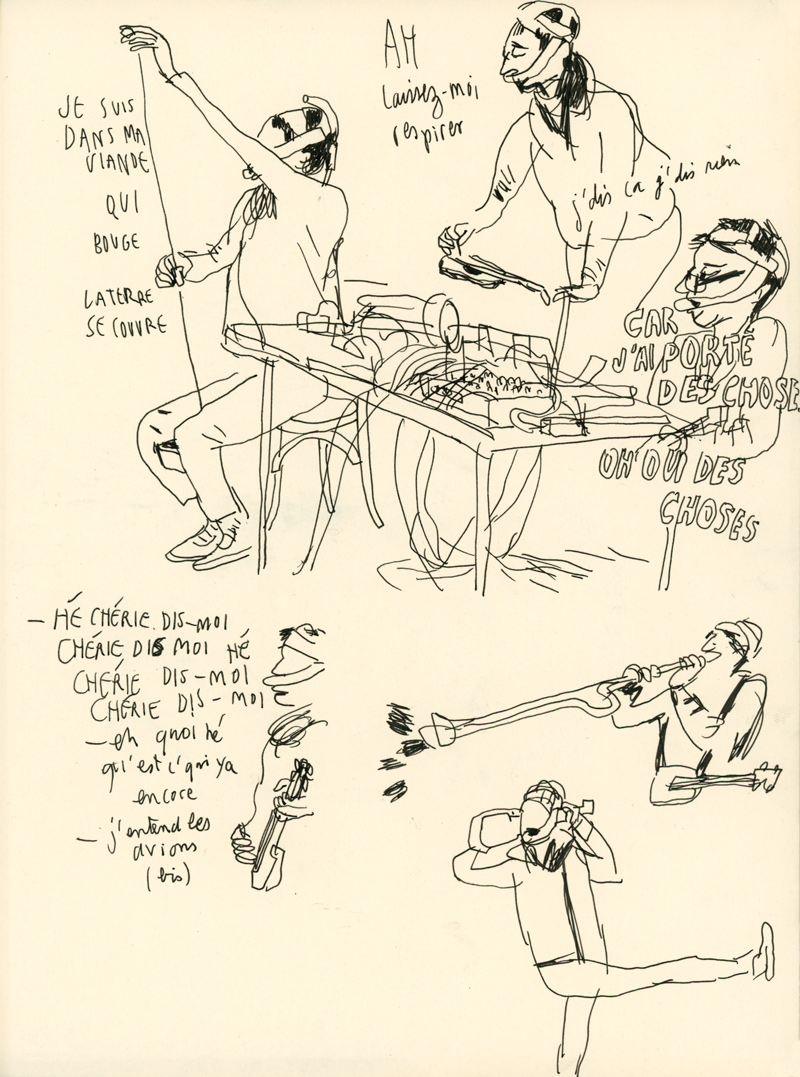 JE SUIS
DANS MA
VIANDE
QUI
BOUGE
LA TERRE
SE COUVRE
AH
laissez-moi
respirer
j'dis ça j'dis rien
CAR
J'AI PORTÉ
DES CHOSE
OH OUI DES
CHOSES
– HÉ CHÉRIE DIS-MOI
CHÉRIE DIS MOI HÉ
CHÉRIE DIS-MOI
CHÉRIE DIS-MOI
– eh quoi hé
qu'est c'qui ya
encore
– j'entend les
avions
(bis)